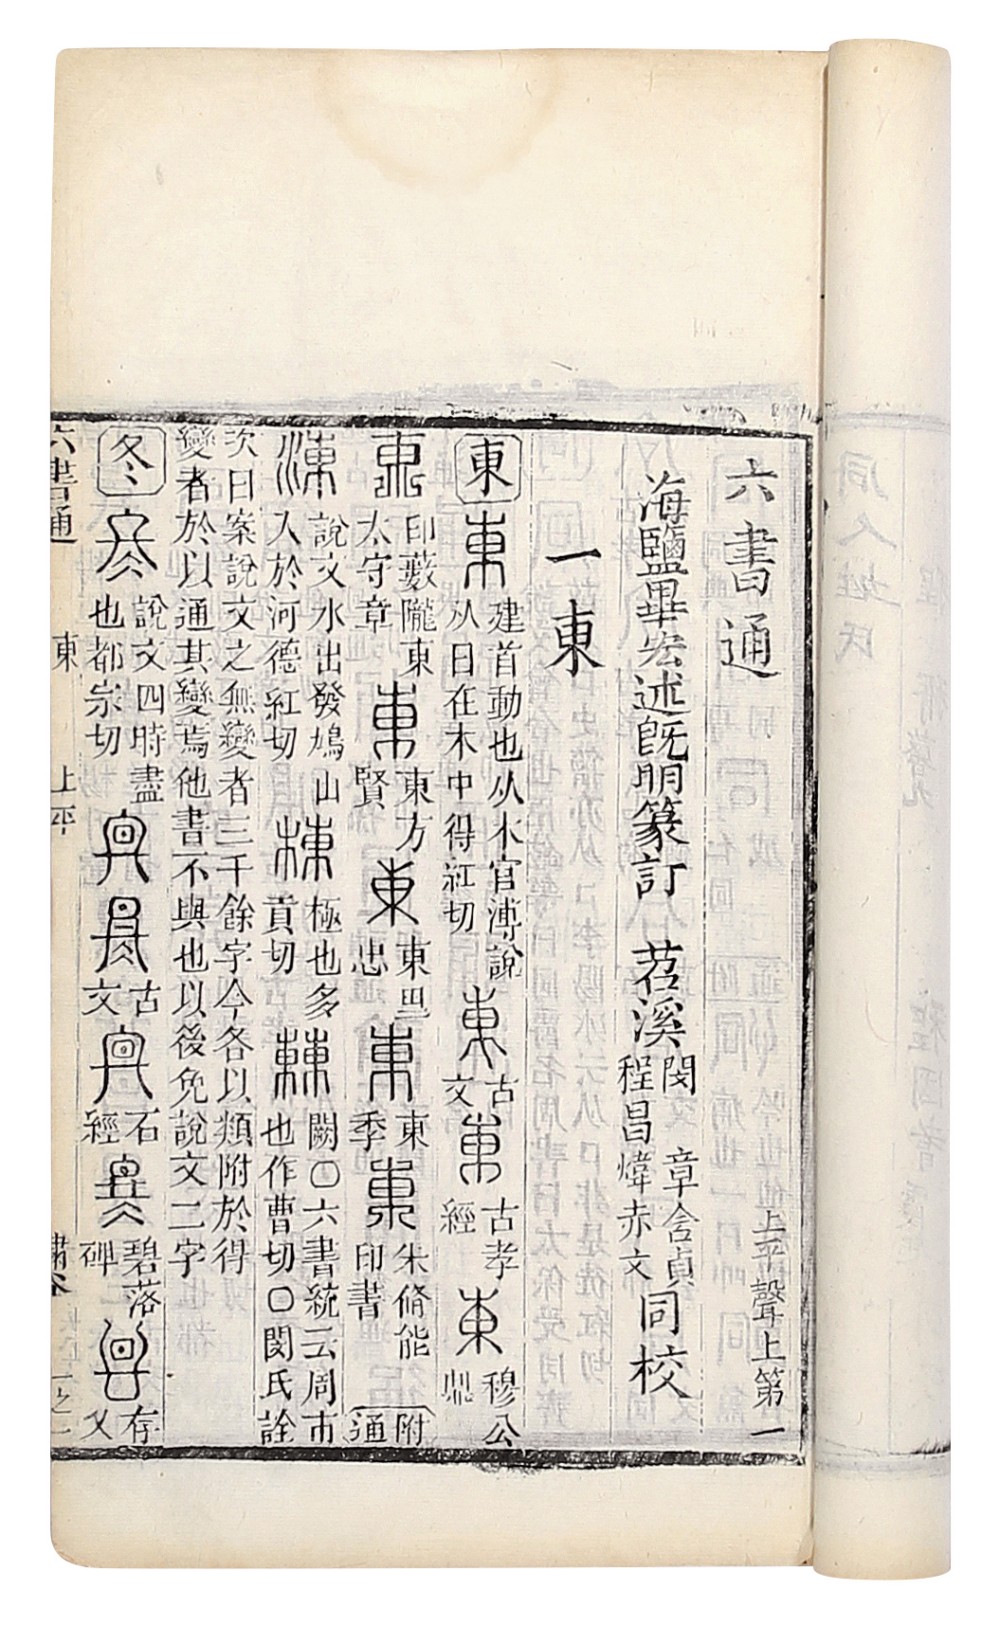 六書通 上平聲上第一
海鹽畢宏述既明篆訂 苕溪 閔章含貞 程昌煒赤文 同校
一東
東 東 建首動也从木官溥說从日在木中得紅切 東 古文 東 古孝經 東 穆公鼎
印藪隴東太守章 東 東方賢 東 東忠 東 東季 東 朱脩能印書 附通
涷 說文水出發鳩山入於河德紅切 棟 極也多貢切 𣍘 闕〇六書統云周市也作曹切〇閔氏詮
次曰案說文之無變者三千餘字今各以類附於得
變者於以通其變焉他書不與也以後免說文二字
冬 冬 說文四時盡也都宗切 古文 石經 碧落碑 存乂
六書通 東 上平